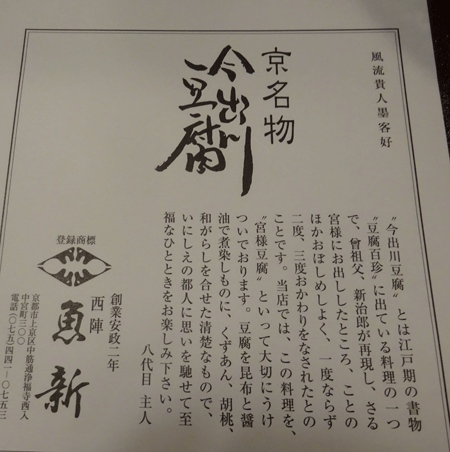 風流貴人墨客好
京名物
今出川
豆腐
〝今出川豆腐〟とは江戸期の書物
〝豆腐百珍〟に出ている料理の一つ
で、曾祖父、新治郎が再現し、さる
宮様にお出ししたところ、ことの
ほかおぼしめしよく、一度ならず
二度、三度おかわりをなされたとの
ことです。当店では、この料理を、
〝宮様豆腐〟といって大切にうけ
ついでおります。豆腐を昆布と醤
油で煮染しものに、くずあん、胡桃、
和がらしを合せた清楚なもので、
いにしえの都人に思いを馳せて至
福なひとときをお楽しみ下さい。
八代目 主人
創業安政二年
西陣
魚新
登録商標
京都市上京区中筋通浄福寺西入
中宮町三〇〇
電話(〇七五)四四一-〇七五三